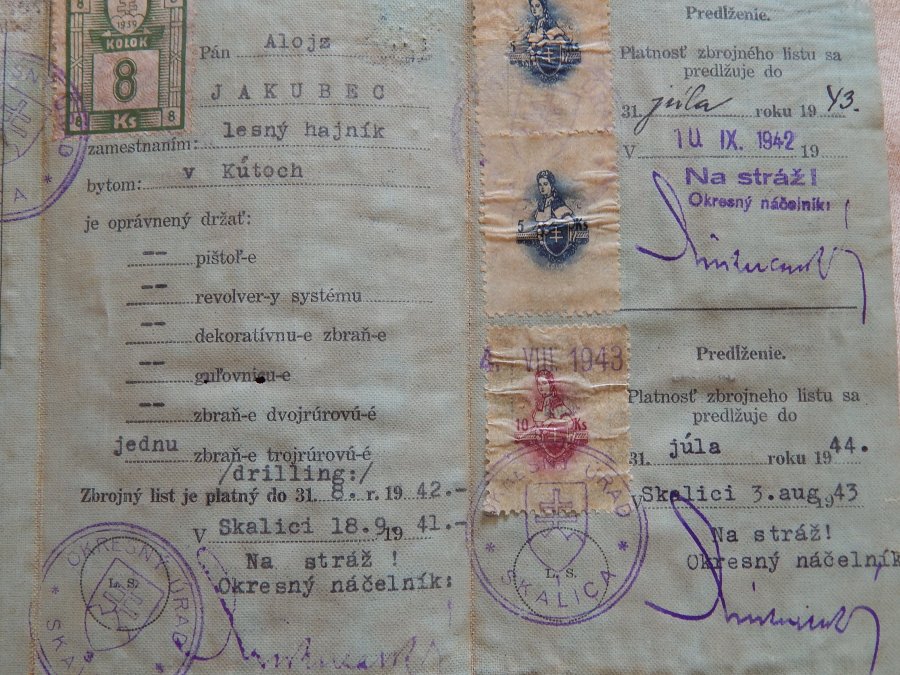 1939
KOLOK
8
Ks
8 8
Pán Alojz
JAKUBEC
zamestnaním: lesný hajník
bytom: v Kútoch
je oprávnený držať:
-- pištoľ-e
-- revolver-y systému
-- dekoratívnu-e zbraň-e
-- guľovnicu-e
-- zbraň-e dvojrúrovú-é
jednu zbraň-e trojrúrovú-é
/drilling:/
Zbrojný list je platný do 31. 8. r. 19 42.-
V Skalici 18.9. 19 41.-
Na stráž !
Okresný náčelník:
L. S.
OKRESNÝ ÚRAD
* SKA
5 Ks
10 Ks
4. VIII. 1943
Predĺženie.
Platnosť zbrojného listu sa
predlžuje do
31. júla roku 19 43.
V 10 IX. 1942 19
Na stráž!
Okresný náčelník:
Predĺženie.
Platnosť zbrojného listu sa
predlžuje do
31. júla roku 19 44.
V Skalici 3.aug. 19 43
Na stráž!
Okresný náčelník:
L. S.
OKRESNÝ ÚRAD
* SKALICA *